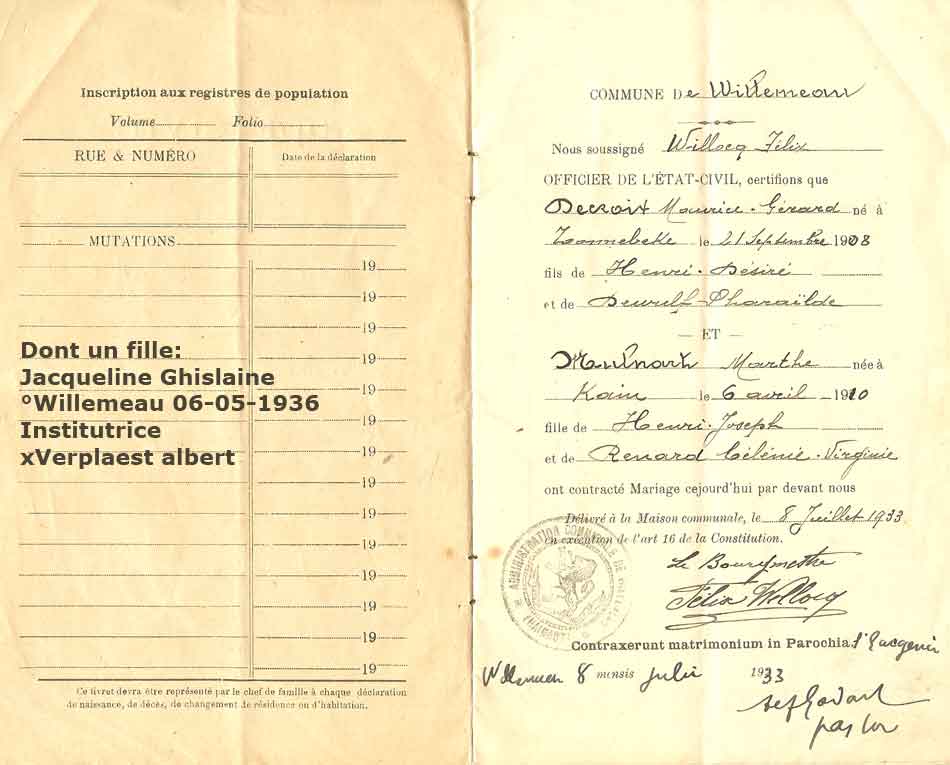 Inscription aux registres de population
Volume Folio
RUE & NUMÉRO Date de la déclaration
MUTATIONS
19
19
19
19
19
19
19
19
19
19
19
19
19
19
Dont un fille:
Jacqueline Ghislaine
°Willemeau 06-05-1936
Institutrice
xVerplaest albert
Ce livret devra être représenté par le chef de famille à chaque déclaration
de naissance, de décès, de changement de résidence ou d'habitation.
COMMUNE De Willemeau
Nous soussigné Willocq Félix
OFFICIER DE L'ÉTAT-CIVIL, certifions que
Decroix Maurice-Gérard né à
Zonnebeke le 21 Septembre 1908
fils de Henri-Désiré
et de Dewulf Pharaïlde
ET
Marthe née à
Kain le 6 avril 1910
fille de Henri-Joseph
et de Renard Célénie-Virginie
ont contracté Mariage cejourd'hui par devant nous
Délivré à la Maison communale, le 8 Juillet 1933
en exécution de l'art 16 de la Constitution.
ADMINISTRATION COMMUNALE DE
Le Bourgmestre
Félix Willocq
Contraxerunt matrimonium in Parochia
Willemeau 8 mensis julii 1933
pastor